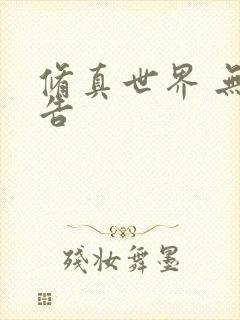 脩真世界 無
告
残妆舞墨